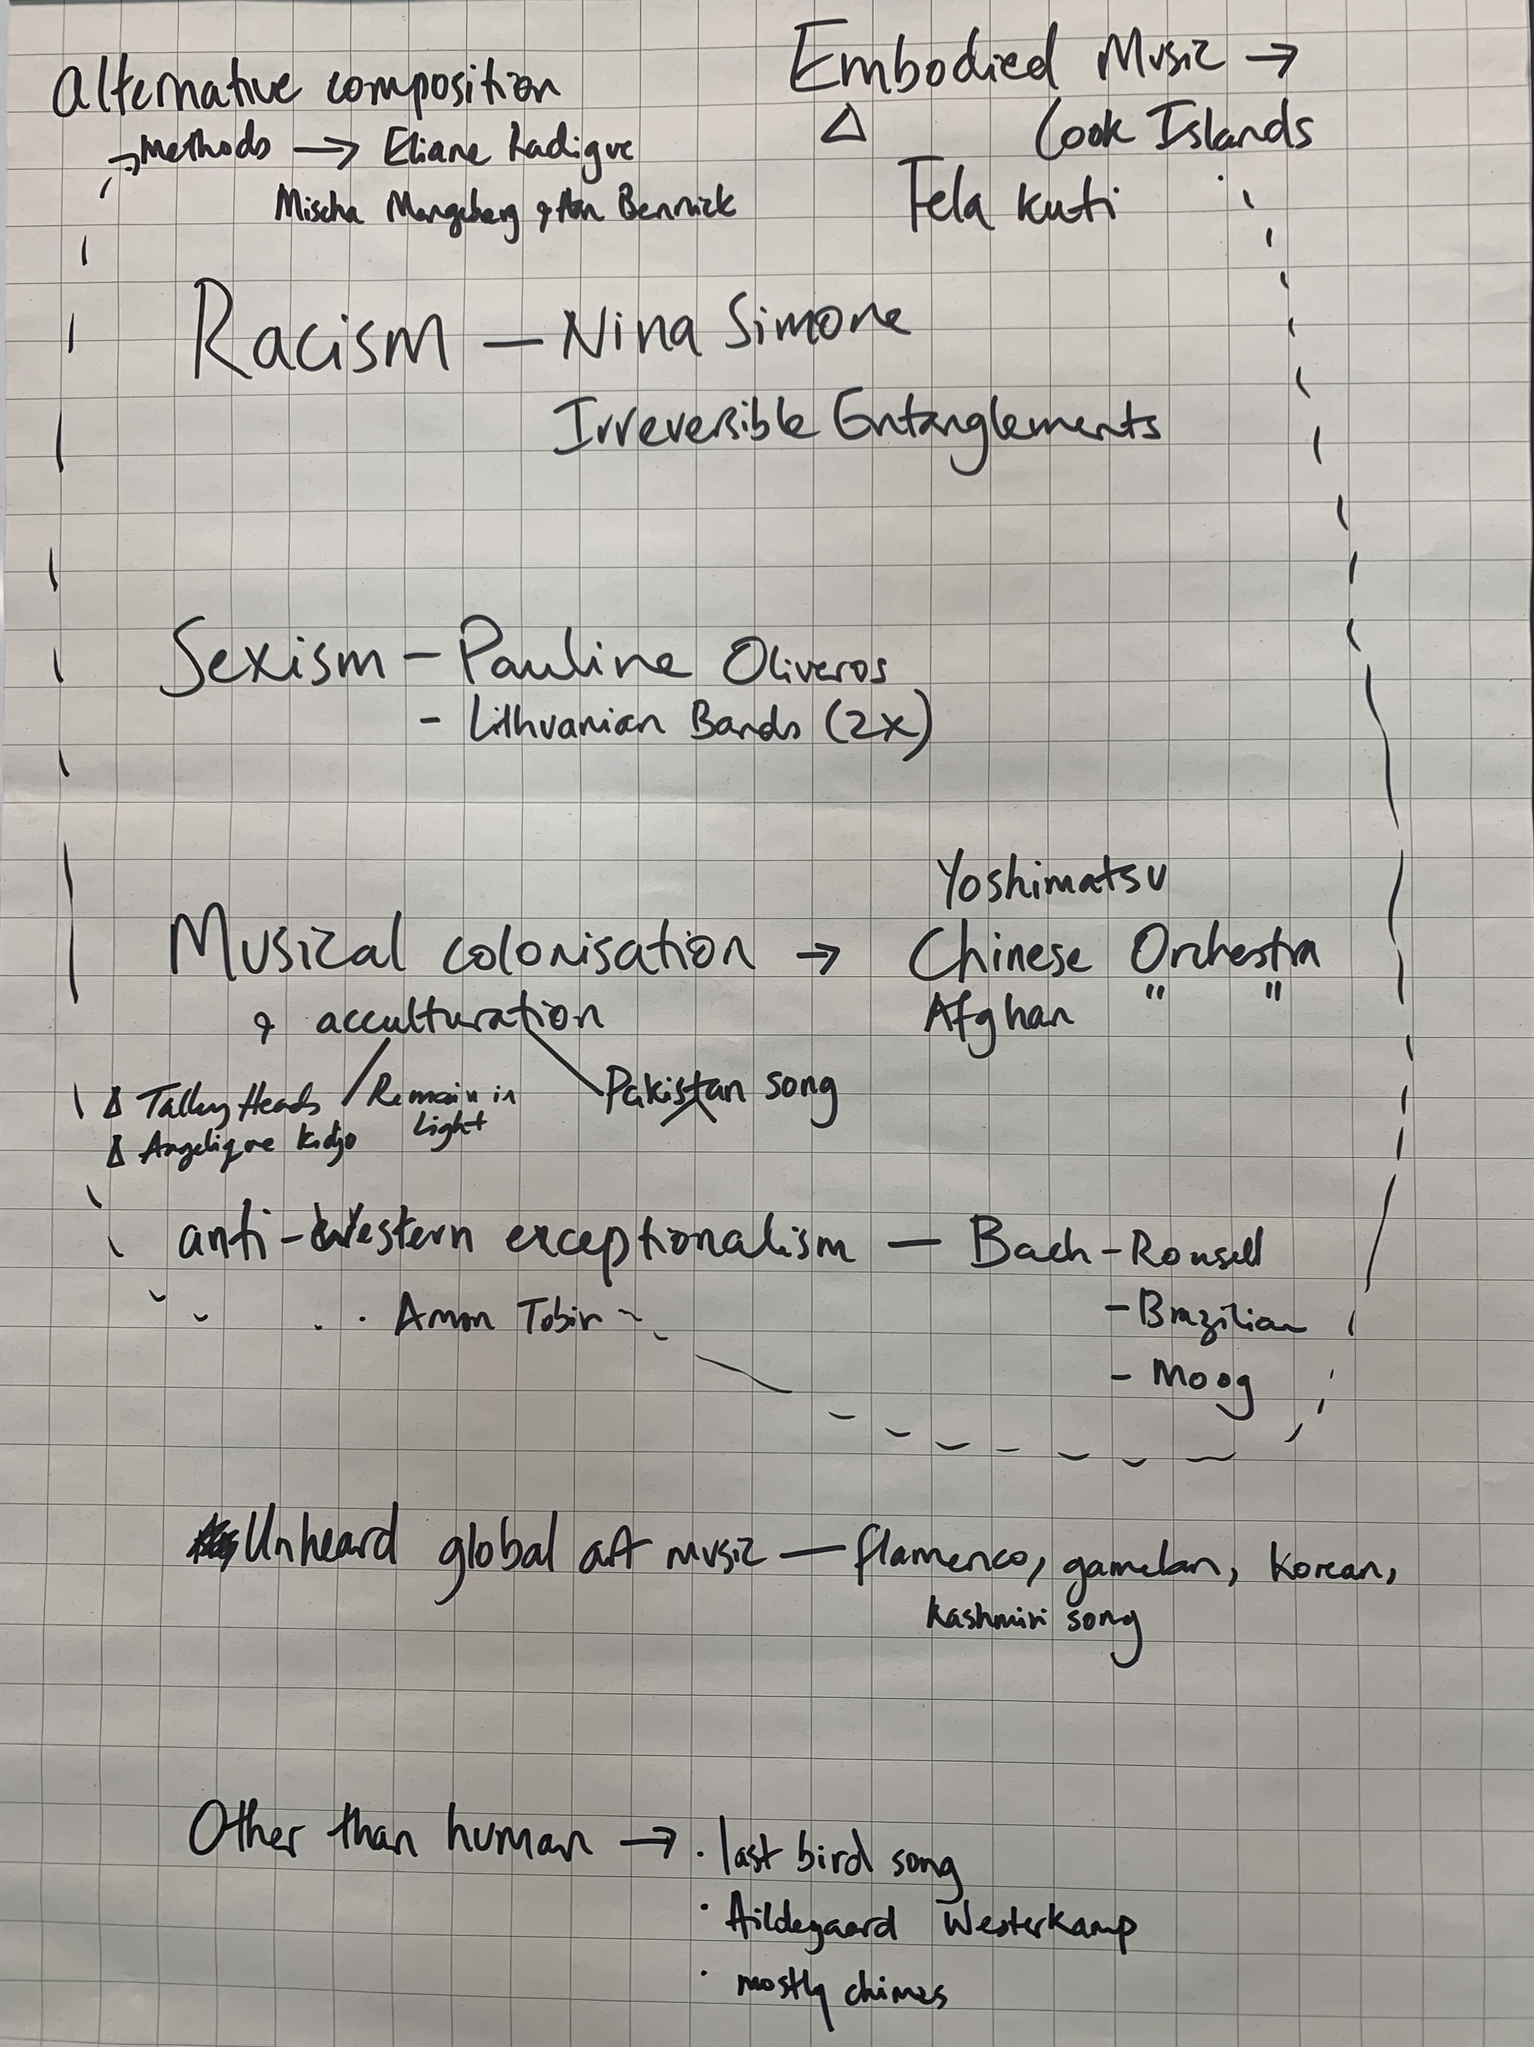 alternative composition
methods → Eliane Radigue
Mischa Mengelberg & Han Bennick
Embodied Music →
Cook Islands
Fela Kuti
Racism – Nina Simone
Irreversible Entanglements
Sexism – Pauline Oliveros
- Lithuanian Bands (2x)
Yoshimatsu
Musical colonisation → Chinese Orchestra
& acculturation
Afghan " "
Talking Heads / Remain in Light
Angelique Kidjo
Pakistan song
anti-Western exceptionalism – Bach - Rousell
- Brazilian
- Moog
Amon Tobin
Unheard global art music – flamenco, gamelan, Korean,
Kashmiri song
Other than human → · last bird song
· Hildegaard Westerkamp
· mostly chimes